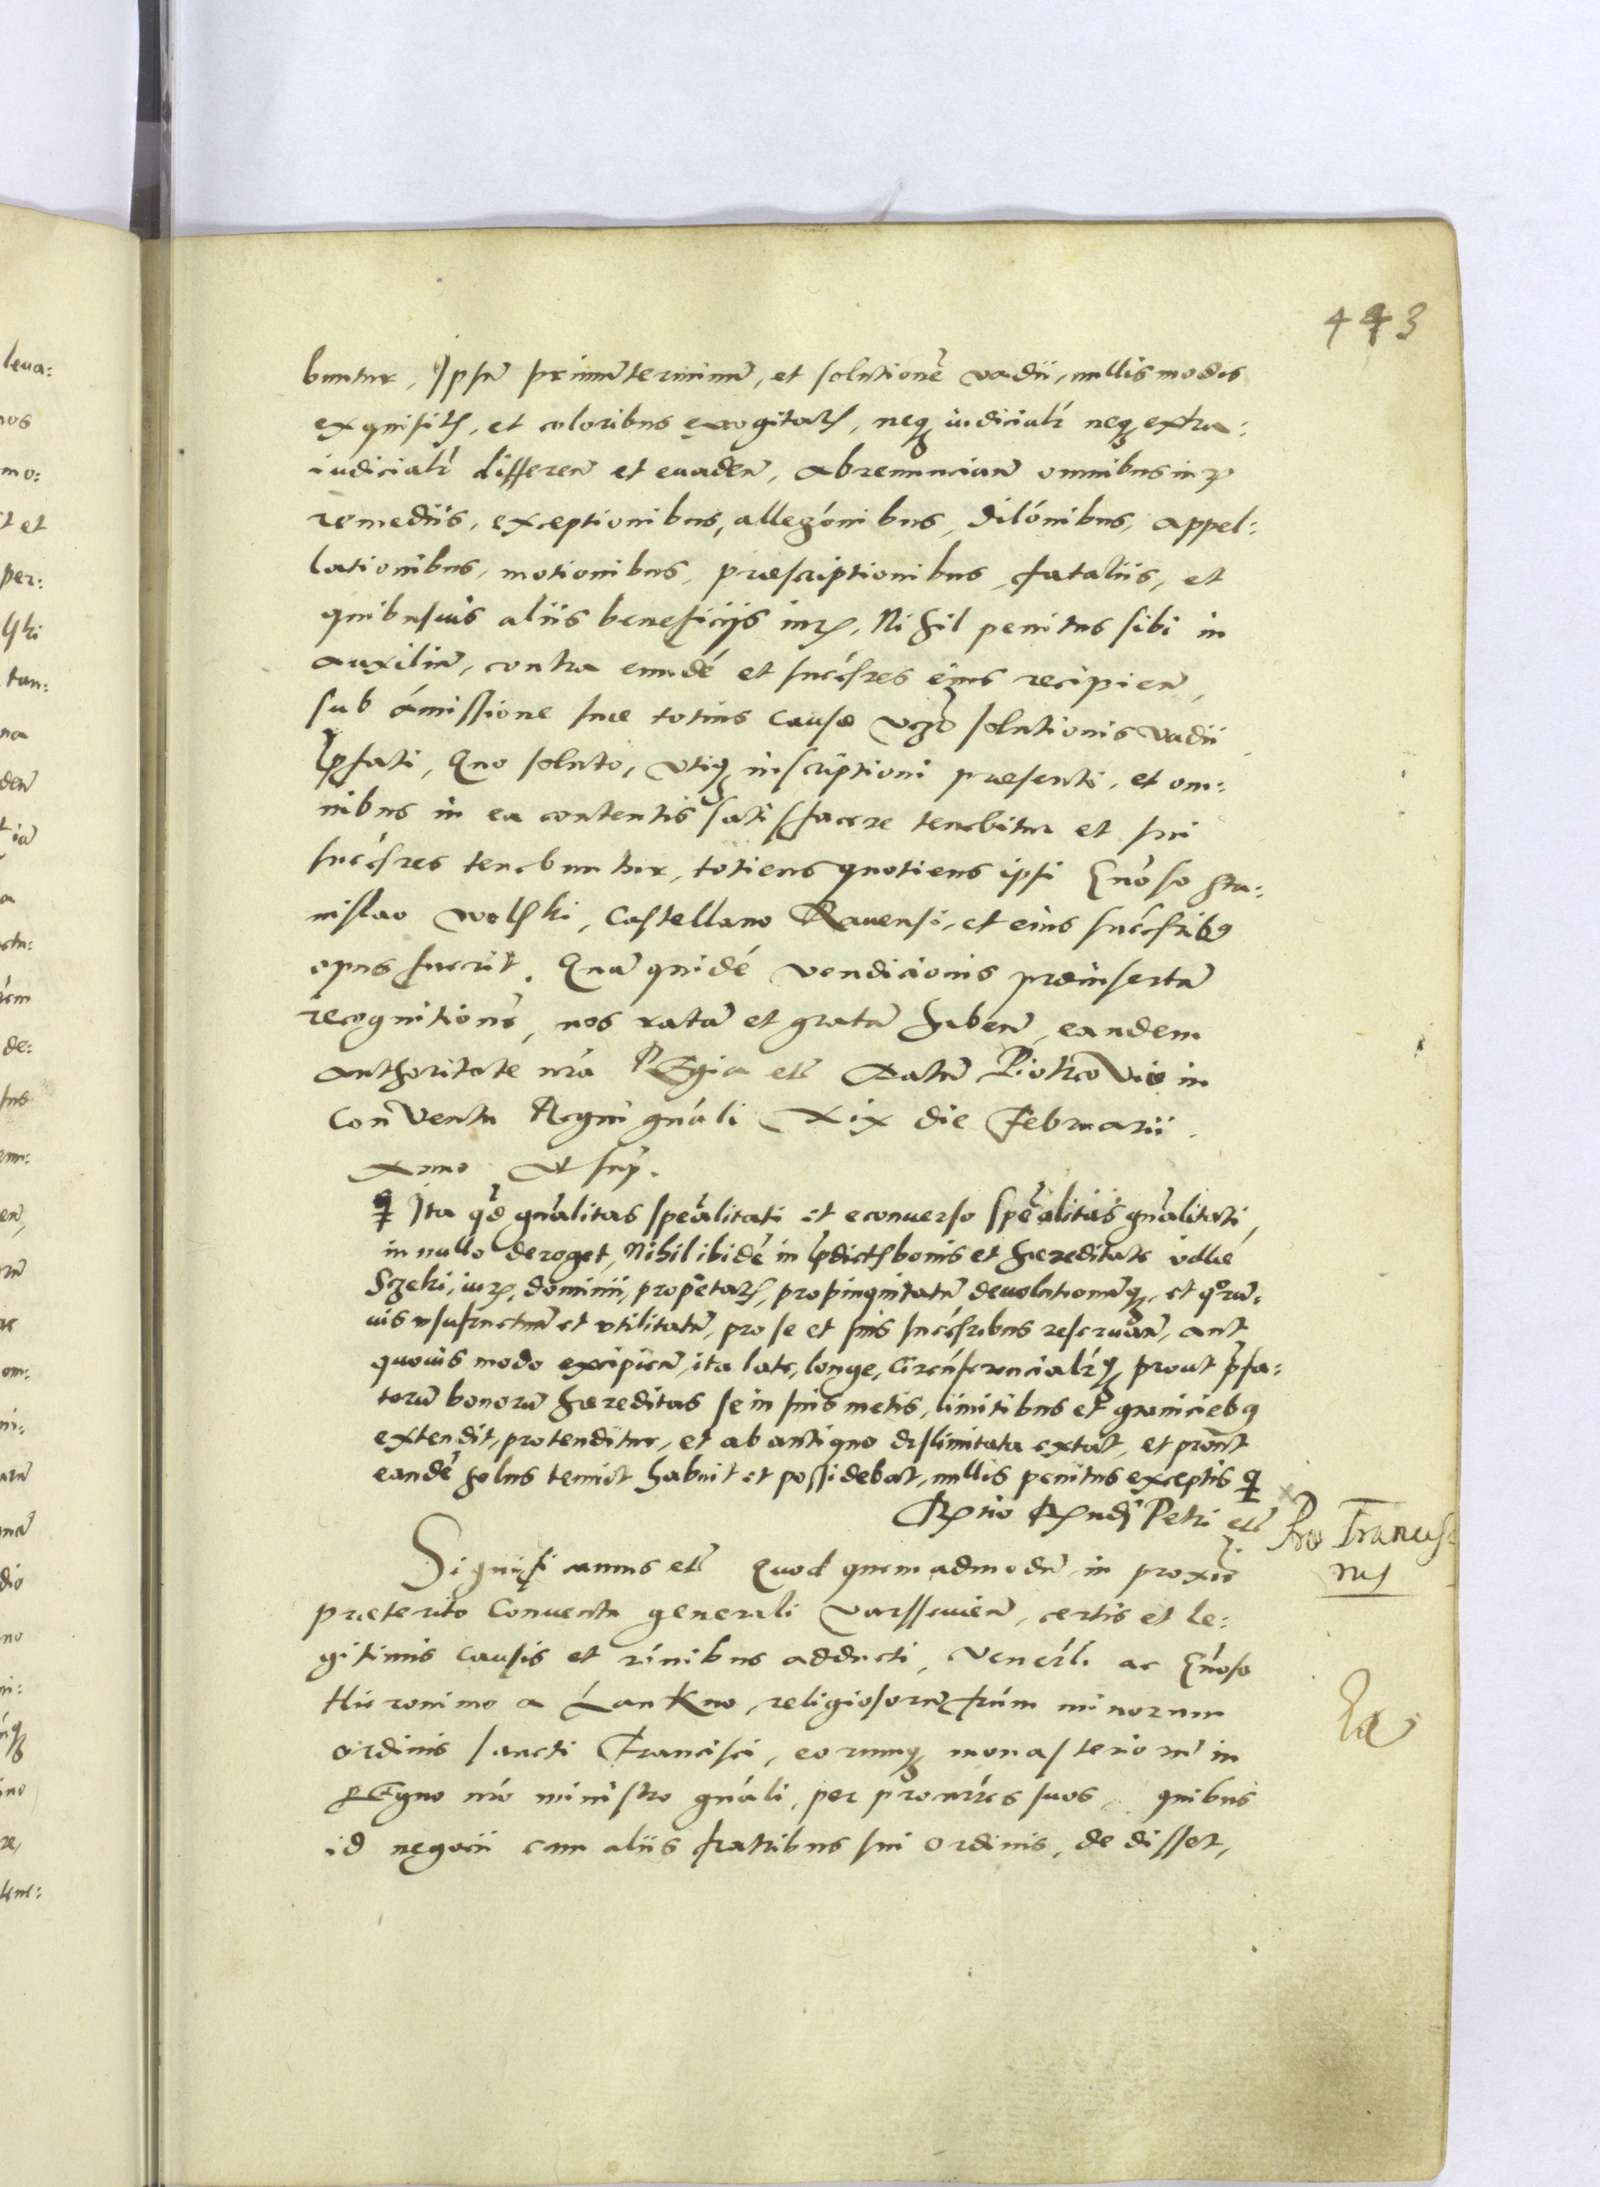 443
buntur, Ipsũ primũ terminũ, et solutionẽ vadii, nullis modis
exquisitꝭ, et coloribus excogitatꝭ, neqꝫ iudicialr̃ neqꝫ extra:
iudicialr̃ differen̄ et euaden̄, abrenuncian̄ omnibus iurꝭ
remediis, exceptionibus, allegónibus, dilónibus, appel:
lationibus, motionibus, præscriptionibus, fataliis, et
quibusuis aliis beneficijs iurꝭ, Nihil penitus sibi in
auxiliũ, contra eundẽ et succ̃sres eius recipien̄,
sub ámissione suæ totius causæ vꝫ solutionis vadii
p̃fati, Quo soluto, vtiqꝫ inscriptioni præsenti, et om:
nibus in ea contentis satisfacere tenebitur et sui
succ̃sres tenebuntur, totiens quotiens ipsi Gn̄oso Sta:
nislao Wolski, Castellano Rauensi, et eius succ̃sribꝯ
opus fuerit. Quã quidẽ vendicionis præinsertã
recognitionẽ, nos ratã et gratã haben̄, eandem
authoritate nrã Regia etc̃ Datũ Piotrcoviæ in
Conventu Regni gn̄ali xix die Februarii
Anno vt sup̃.
Ita qd̃ gn̄alitas spec̃alitati et econuerso spec̃alitas gn̄alitati,
in nullo deroget, Nihil ibidẽ in p̃dictꝭ bonis et hæreditate villæ
Szeki, iurꝭ, dominii, prop̃etatꝭ, propinquitatũ deuolutionumqꝫ, et quorũ:
uis vsufructuũ et vtilitatũ, pro se et suis succ̃sribus reseruan̄, aut
quouis modo excipien̄, ita late, longe, circũferencialr̃qꝫ, prout p̃fa:
torũ bonorũ hæreditas se in suis metis, limitibus et graniciebꝯ
extendit, protenditur, et ab antiquo dislimitata extat, et prout
eandẽ solus tenuit habuit et possidebat, nullis penitus exceptis
Rꝭtio Rꝭndi Petri etc̃
Pro Francis
nis
Significamus etc̃ Quod quemadmodũ in proxiẽ
præterito Conuentu generali Varssauien̄, certis et le:
gitimis causis et rónibus adducti, Vener̃li ac Gn̄oso
Hieronimo a Lankno, religiosorũ frúm minorum
ordinis sancti Francisci, eorumqꝫ monasteriorũ in
Regno nró ministro gn̄ali, per procur̃res suos, quibus
id negocii cum aliis fratribus sui ordinis, dedisset,